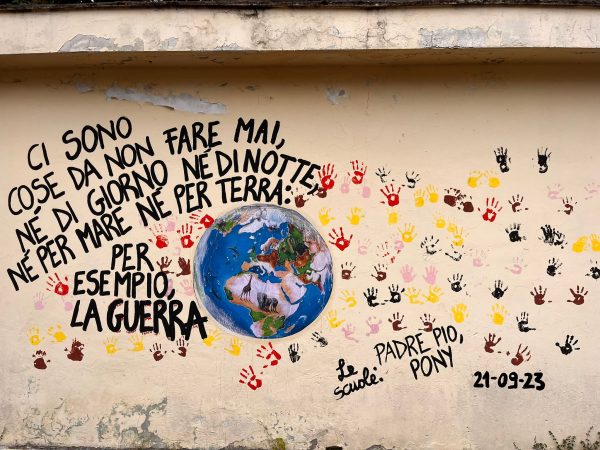 CI SONO
COSE DA NON FARE MAI,
NÉ DI GIORNO NÉ DI NOTTE,
NÉ PER MARE NÉ PER TERRA:
PER
ESEMPIO,
LA GUERRA
Le
scuole:
PADRE PIO,
PONY
21-09-23